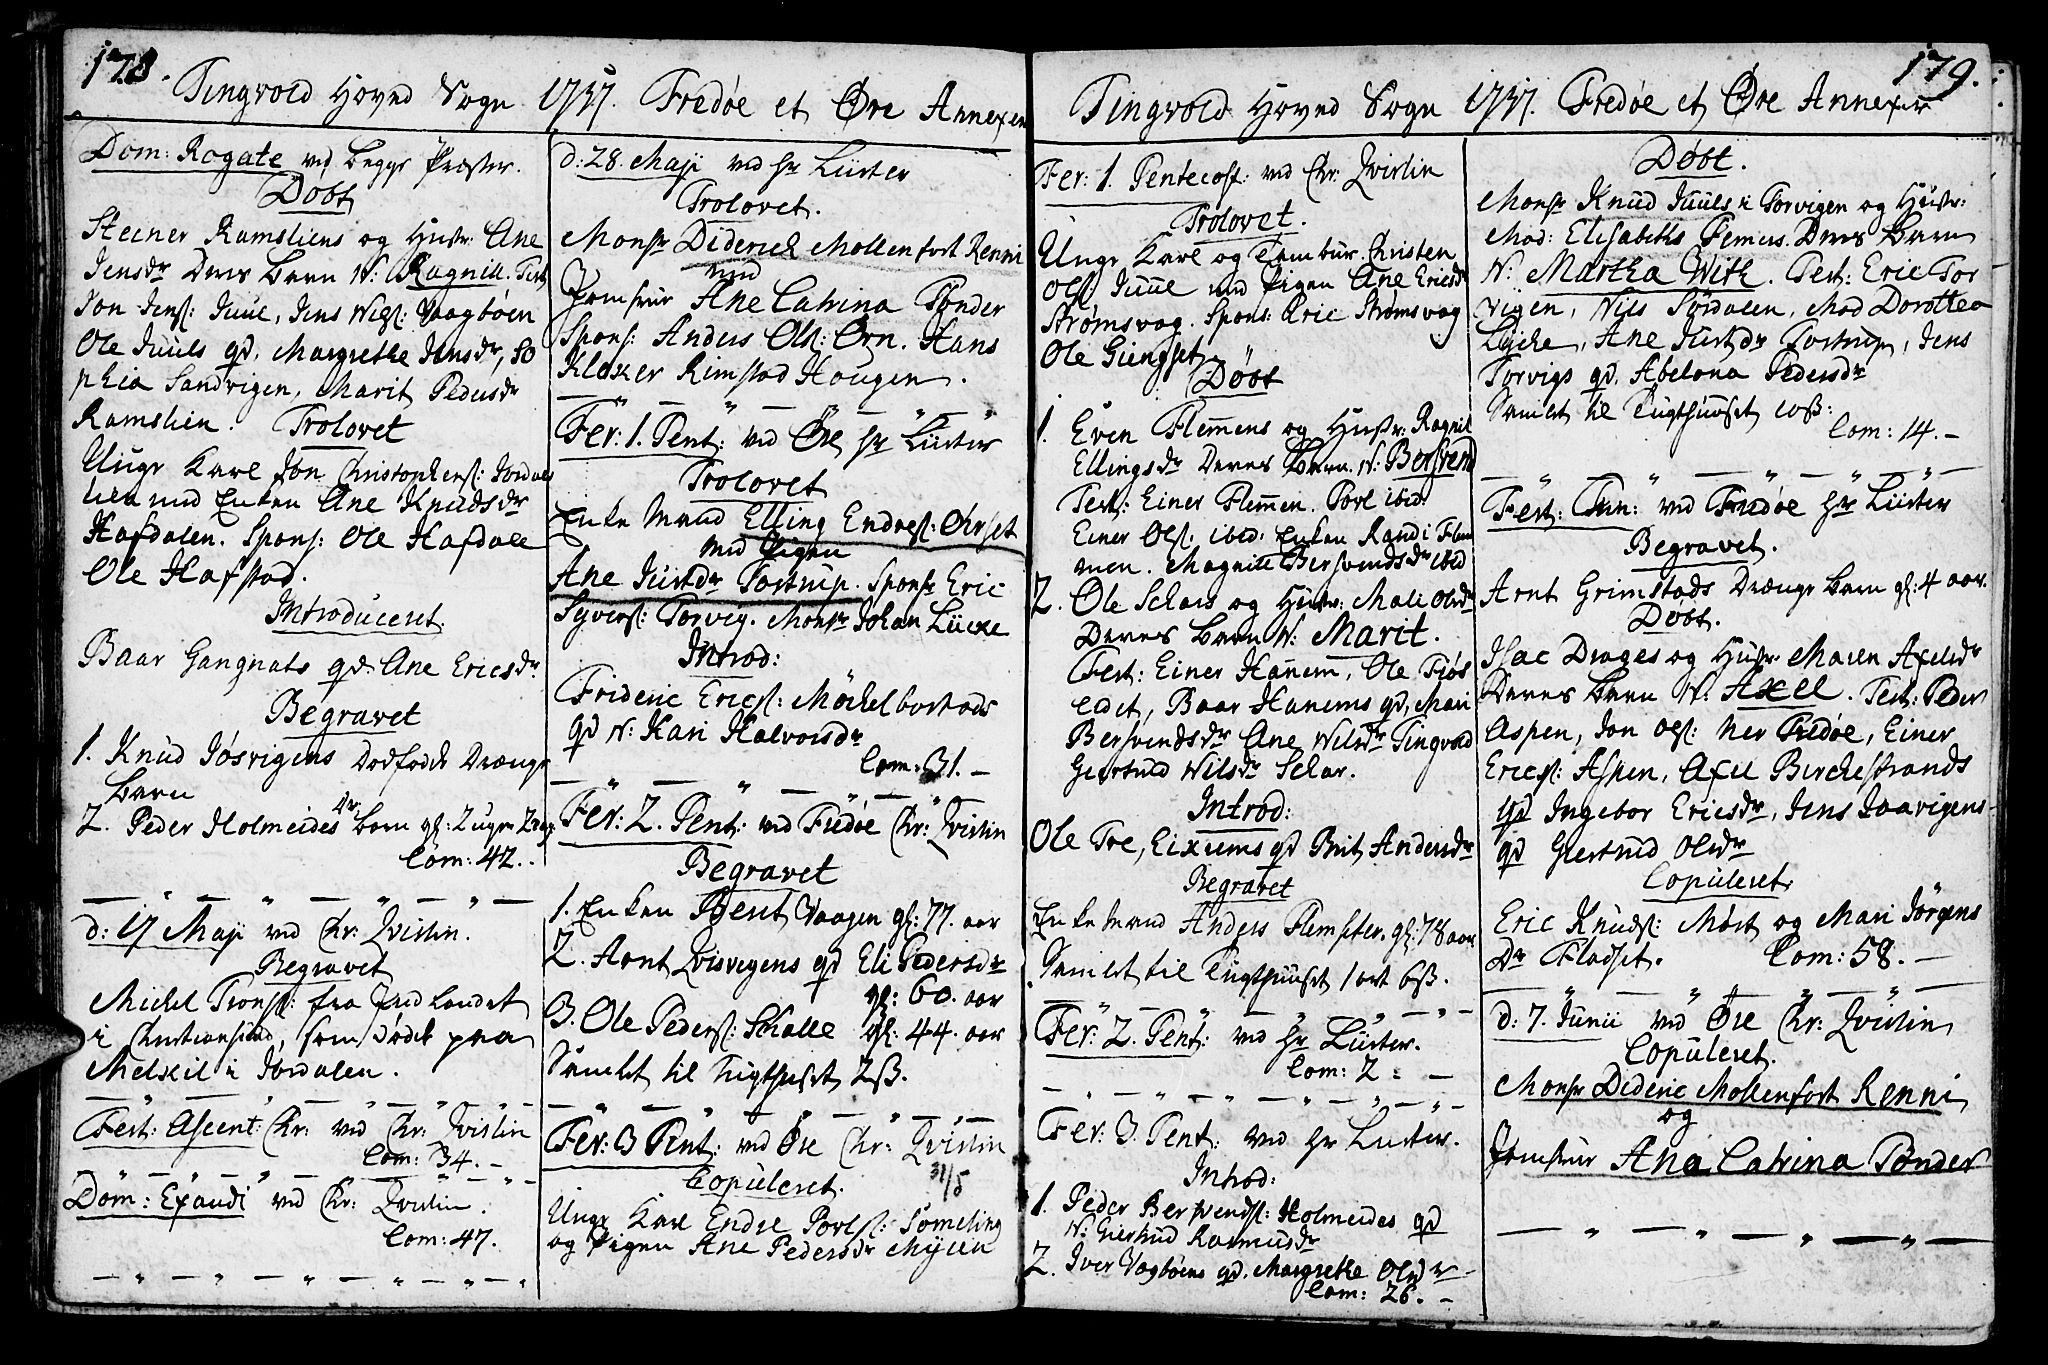 178.
Tingvold Hoved Sogn 1737. Fredøe et Øre Annexer
Dom: Rogate ved begge Præster.
Døbt
Steener Ramsliens og Hustr: Ane
Jensdr Deres Barn N: Ragnill. Test:
Jon Jens: Juul, Jens Nigs: Vaagbøen
Ole Juuls qd, Margrethe Jensdr, So
phia Sandvigen, Marit Pedersdr
Ramslien. Trolovet
Unge Karl Jon Christophers: Jordals
lien med Enken Ane Knudsdr
Hafdalen. Spons: Ole Hafdall
Ole Hafstad.
Introduceret.
Baar Gangnats qd: Ane Ericsdr
Begravet
1. Knud Jøsvigens Dødfødde Drænge
Barn
2. Peder Holmeides dr Barn gl: 2 uger 2 dag
Com: 42.
d: 17 Maji ved Chr: Qvislin.
Begravet
Michel Trons: fra Indlandet
i Christiansund, som døde paa
Melkil i Jordalen.
Fest: Ascent: Chr: ved Chr: Qvislin
Com: 34. -
Dom: Exaudi ved Chr: Qvislin.
Com: 47.
d: 28. Maji ved Hr Lüster
Trolovet.
Monsr Diderich Mollenfort Renni
med
Jomfrue Ane Catrina Tønder
Spons: Anders Ols: Ørn. Hans
Klaker Rimstad Hougen.
Fer: 1. Pent: ved Øre Hr Lüster
Trolovet
Enke Mand Elling Endres: Ohrset
med Pigen
Ane Justdr Tostrup. Sponsr Eric
Syvers: Torvig. Monsr Johan Lücke
Introd:
Frideric Erics: Møchelbostads
qd N: Kari Halvorsdr
Com: 31. -
Fer: 2. Pent: ved Fredøe Chr: Qvislin
Begravet
1. Enken Beret Vaagen gl: 77. aar
2. Arnt Qvisvigens qd Eli Pedersdr
gl: 60. aar
3. Ole Peders: Skalle gl: 44. aar
Samlet til Tugthuset 2ß.
Fer: 3 Pent: ved Øre Chr: Qvislin
Copuleret. 31/5
Unge Karl Endre Povls: Someling
og Pigen Ane Pedersdr Myren
179.
Tingvold Hoved Sogn 1737. Fredøe et Øre Annexer
Fer: 1. Pentecost: ved Chr: Qvislin
Trolovet.
Unge Karl og Tambur Christen
Ols: Juul med Pigen Ane Ericsdr
Strømsvag. Spons: Eric Strømsvag
Ole Giengset
Døbt
1. Even Flemmens og Hustr: Ragnil
Ellingsdr Deres Barn. N: Bersvend
Test: Einer Flemmen. Povl ibid:
Einer Ols: ibid: Enken Randi Flem
men. Magnill Bersvendsdr ibid
2. Ole Schars og Hustr: Mali Olsdr
Deres Barn N: Marit.
Test: Einer Hanem, Ole Fiøs
eidet, Baar Hanems qd, Mari
Bersvendsdr Ane Nilsdr Tingvold
Giertrud Nilsdr Schar.
Introd:
Ole Tre, Eixums qd Brit Andersdr
Begravet
Enke Mand Anders Flemseter. gl: 78 aar
Samlet til Tugthuuset 1 ort 6ß.
Fer: 2. Pent: ved Hr Lüster.
Com: 2 - -
Fer: 3. Pent: ved Hr Lüster.
Introd:
1. Peder Bersvends: Holmeides qd
N: Giertrud Rasmusdr
2. Iver Vagbøens qd. Margrethe Olsdr
Com: 26. -
Døbt.
Monsr Knud Juuls i Torvigen og Hustr:
Mad: Elisabeths Femers. Deres Barn
N: Martha With. Test: Eric Tor
vigen, Nils Sørdalen, Mad Dorothea
Lycke, Ane Justdr Tostrup, Jens
Torvigs qd. Abelona Pedersdr
Samlet til Tugthuuset 10ß:
Com: 14. -
Fest: Trin: ved Fredøe Hr Lüster
Begravet.
Arnt Grimstads Drænge Barn gl: 4 aar.
Døbt.
Isac Drages og Hustr: Maren Axelsdr
Deres Barn N: Axel. Test: Peder
Aspen, Jon Ols: Ner Fredøe, Einer
Erics: Aspen, Axel Berchestrands
qd Ingebor Ericsdr, Jens Jaavigens
qd Giertrud Olsdr
Copuleret.
Eric Knuds: Møst og Mari Jørgens
Dr Fladset. Com: 58. -
d: 7. Junii ved Øre Chr: Qvislin
Copuleret.
Monsr Dideric Mollenfort Renni
og
Jomfrue Ana Catrina Tønder